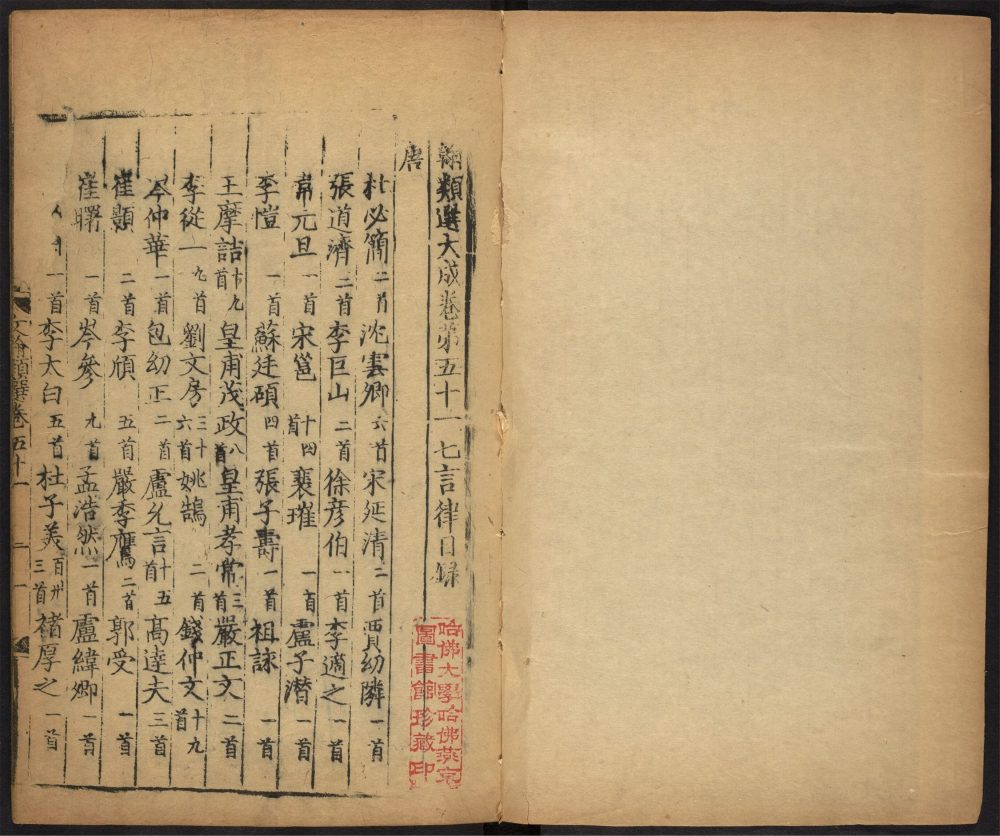 翰類選大成卷第五十一 七言律目錄
唐
杜必簡 二首 沈雲卿 六首 宋延清 二首 賈幼隣 一首
張道濟 二首 李巨山 二首 徐彦伯 一首 李適之 一首
常元旦 一首 宋邕 十四首 裴璀 一首 盧子潛 一首
李愷 一首 蘇廷碩 四首 張子壽 一首 祖詠 一首
王摩詰 十九首 皇甫茂政 八首 皇甫孝常 三首 嚴正文 二首
李從一 九首 劉文房 三十六首 姚鵠 二首 錢仲文 十九首
岑仲華 一首 包幼正 二首 盧允言 十五首 高達夫 三首
崔顥 二首 李頎 五首 嚴季鷹 二首 郭受 一首
崔曙 一首 岑參 九首 孟浩然 一首 盧緯卿 一首
一首 李太白 五首 杜子美 百卅三首 褚厚之 一首
文翰類選卷五十一 一
哈佛大學哈佛燕京
圖書館珍藏印